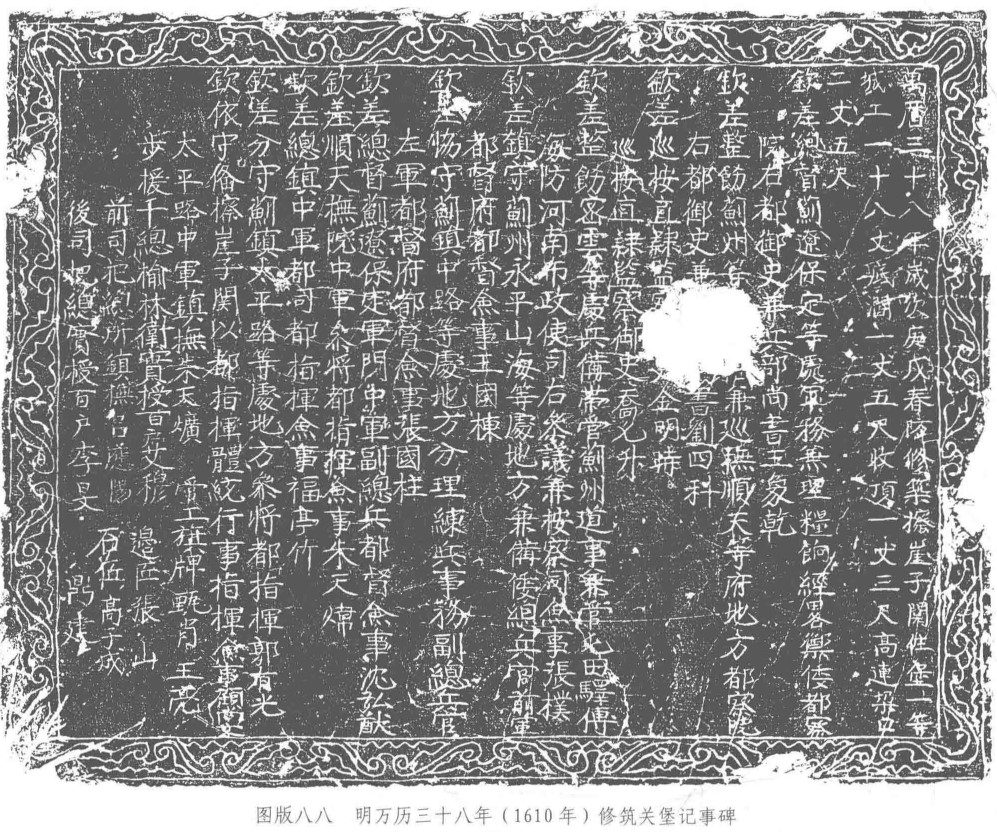 萬曆三十八年歲次庚戌春防修築擦崖子關住壹一等
工一十八丈底闊一丈五尺收頂一丈三尺高連垛口
二丈五尺
欽差總督薊遼保定等處軍務兼理糧餉經畧禦倭都察
院右都御史兼兵部尚書王象乾
欽差整飭薊州等 兼巡撫順天等府地方都察院
右都御史兼 書劉四科
欽差巡按直隸監 金明時
巡按直隸監察御史喬允升
欽差整飭密雲等處兵備帶管薊州道事兼管屯田驛傳
海防河南布政使司右叅議兼按察司僉事張樸
欽差鎮守薊州永平山海等處地方兼備倭總兵官前軍
都督府都督僉事王國棟
欽差協守薊鎮中路等處地方分理練兵事務副總兵官
左軍都督府都督僉事張國柱
欽差總督薊遼保定軍門中軍副總兵都督僉事沈弘猷
欽差順天撫院中軍叅將都指揮僉事朱天
欽差總鎮中軍都司都指揮僉事福亭竹
欽差分守薊鎮太平路等處地方叅將都指揮郭有光
欽依守俻擦崖子關以都指揮體統行事指揮僉事
太平路中軍鎮撫 天爌 管工旗牌甄肖 王亮
步援千總榆林衛實授百戶艾穆 邊匠張山
前司把總所鎮撫 應陽 石匠高子成
後司把總實授百戶李旻 鼎建
图版八八 明万历三十八年（1610年）修筑关堡记事碑